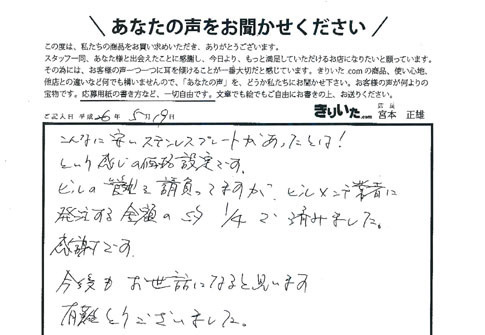 ＼あなたの声をお聞かせください／
この度は、私たちの商品をお買い求めいただき、ありがとうございます。
スタッフ一同、あなた様と出会えたことに感謝し、今日より、もっと満足していただけるお店になりたいと願っています。
その為には、お客様の声一つ一つに耳を傾けることが一番大切だと感じています。きりいた.comの商品、使い心地、
他店との違いなど何でも構いませんので、「あなたの声」を、どうか私たちにお聞かせ下さい。お客様の声が何よりの
宝物です。応募用紙の書き方など、一切自由です。文章でも絵でもご自由にお書きの上、お送りください。
ご記入日 平成26年5月19日
きりいた.com 店長 宮本 正雄
こんなに安いステンレスプレートがあったとは！
という感じの価格設定です。
ビルの管理を請負ってますが、ビルメンテ業者に
発注する金額の約1/4で済みました。
感謝です。
今後もお世話になると思います
有難とうございました。